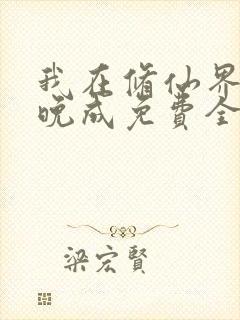 我在修仙界
晚成免费全
梁宏賢